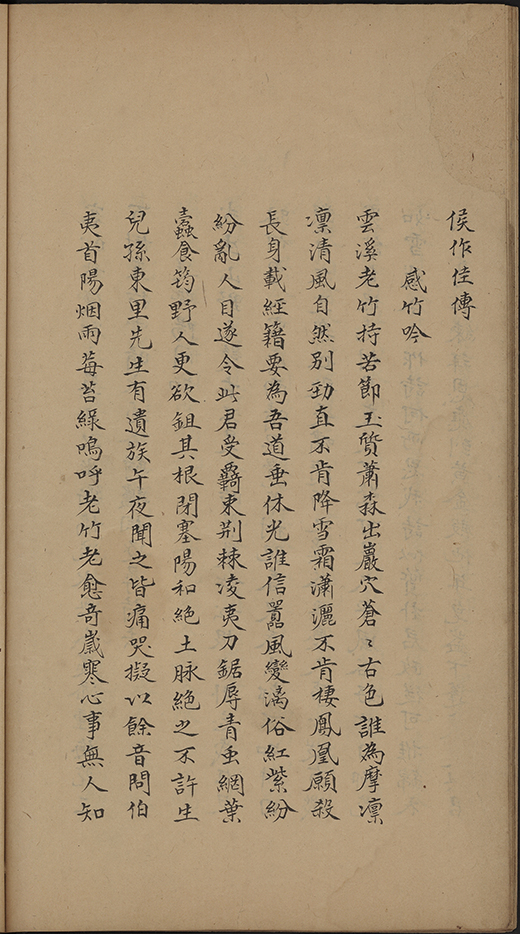 侯作佳傳
感竹吟
雲溪老竹持苦節玉質蕭森出巖穴蒼〻古色誰為摩凜
凜清風自然別勁直不肯降雪霜瀟灑不肯棲鳳凰願殺
長身載經籍要為吾道垂休光誰信囂風變漓俗紅紫紛
紛亂人目遂令此君受羈束荆棘凌夷刀鋸辱青虫網葉
蠹食筠野人更欲鉏其根閉塞陽和絕土脉絕之不許生
兒孫東里先生有遺族午夜聞之皆痛哭擬以餘音問伯
夷首陽烟雨莓苔綠嗚呼老竹老愈奇歲寒心事無人知